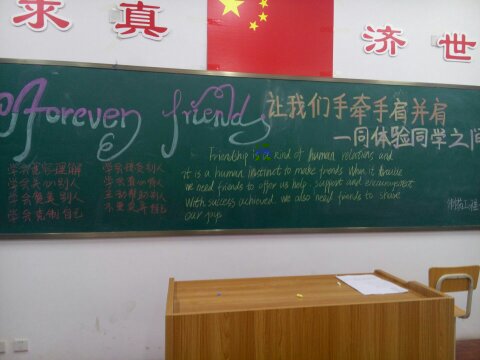 求真
济世
forever friends
让我们手牵手肩并肩
一同体验同学之间
学会宽容理解
学会关心别人
学会赞美别人
学会克制自己
学会真心待人
主动帮助别人
Friendship is a kind of human relations and
it is a human instinct to make friends. When in trouble
we need friends to offer us help, support and encouragement
With success achieved, we also need friends to share
our joys